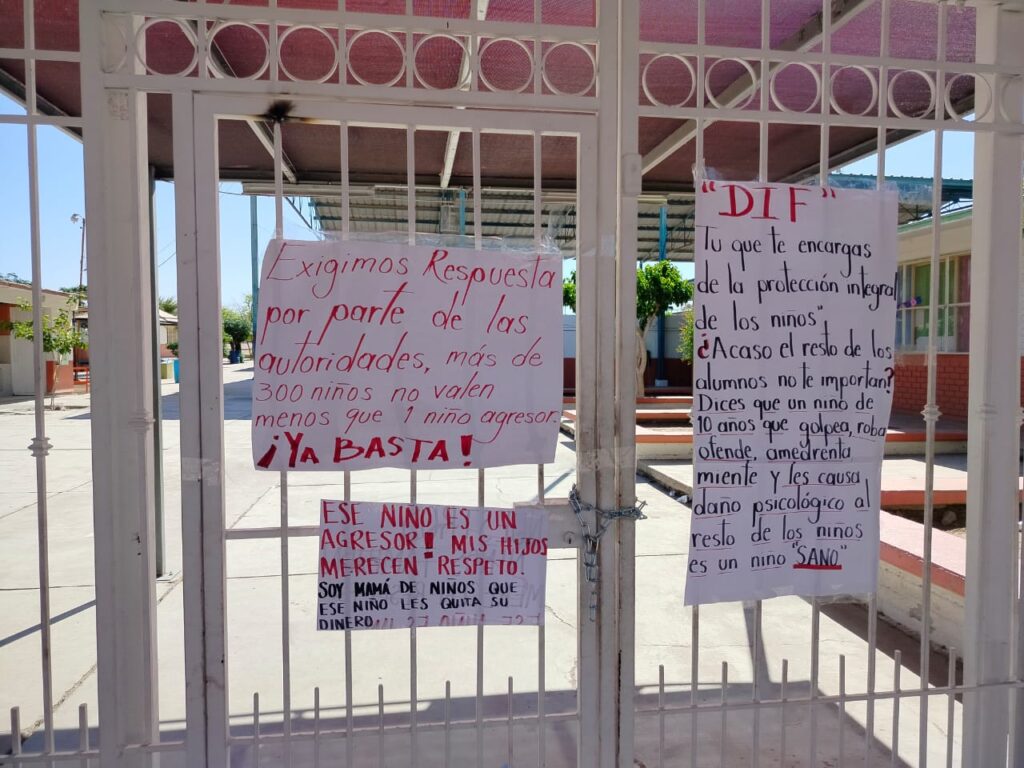 Exigimos Respuesta
por parte de las
autoridades, más de
300 niños no valen
menos que 1 niño agresor.
¡Ya BASTA!
ESE NIÑO ES UN
AGRESOR! MIS HIJOS
MERECEN RESPETO!
SOY MAMÁ DE NIÑOS QUE
ESE NIÑO LES QUITA SU
DINERO
"DIF"
Tu que te encargas
de la protección integral
de los niños"
¿Acaso el resto de los
alumnos no te importan?
Dices que un niño de
10 años que golpea, roba
ofende, amedrenta
miente y les causa
daño psicológico al
resto de los niños
es un niño "SANO"